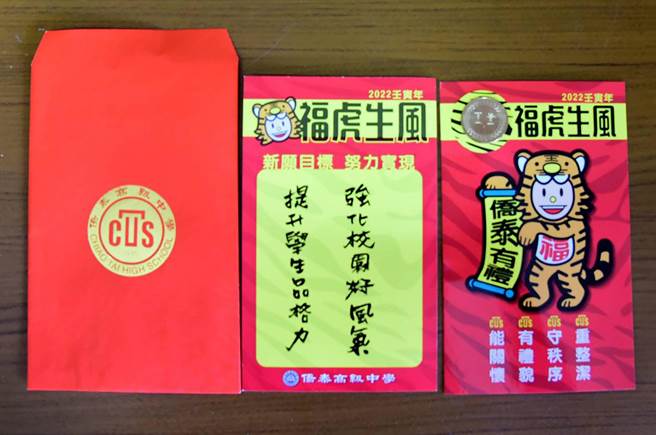 僑泰高級中學
CUS
CHIAO TAI HIGH SCHOOL
2022壬寅年
福虎生風
新願目標 努力實現
強化校園好風氣
提升學生品格力
僑泰高級中學
2022壬寅年
福虎生風
僑泰有禮
福
CUS
重整潔
CUS
守秩序
CUS
有禮貌
CUS
能關懷